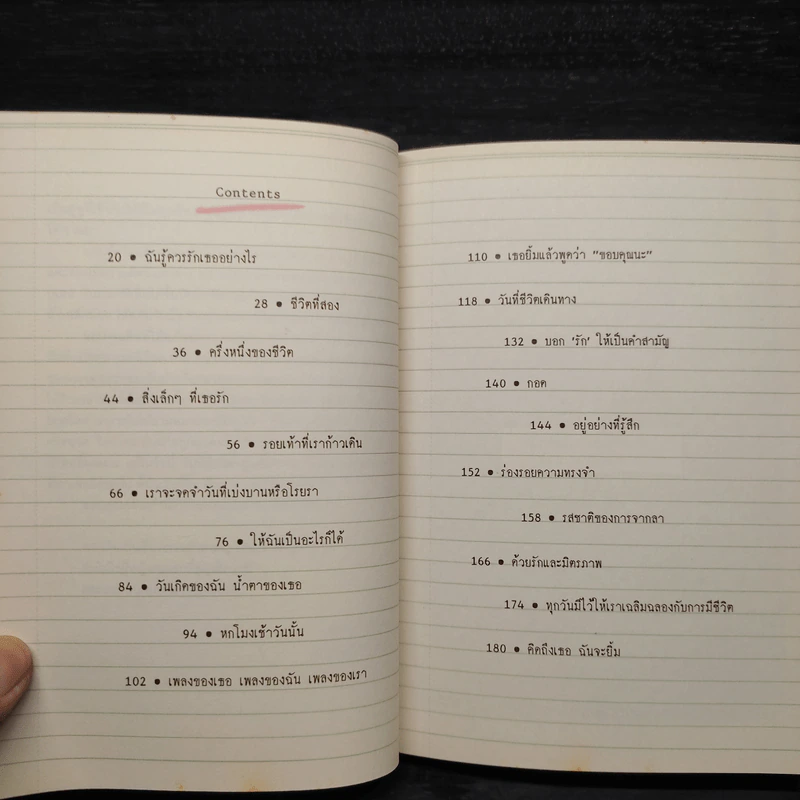 Contents
20 • ฉันรู้ควรรักเธออย่างไร
28 • ชีวิตที่สอง
36 • ครึ่งหนึ่งของชีวิต
44 • สิ่งเล็กๆ ที่เธอรัก
56 • รอยเท้าที่เราก้าวเดิน
66 • เราจะจดจำวันที่เบ่งบานหรือโรยรา
76 • ให้ฉันเป็นอะไรก็ได้
84 • วันเกิดของฉัน น้ำตาของเธอ
94 • หกโมงเช้าวันนั้น
102 • เพลงของเธอ เพลงของฉัน เพลงของเรา
110 • เธอยิ้มแล้วพูดว่า "ขอบคุณนะ"
118 • วันที่ชีวิตเดินทาง
132 • บอก 'รัก' ให้เป็นคำสามัญ
140 • กอด
144 • อยู่อย่างที่รู้สึก
152 • ร่องรอยความทรงจำ
158 • รสชาติของการจากลา
166 • ด้วยรักและมิตรภาพ
174 • ทุกวันมีไว้ให้เราเฉลิมฉลองกับการมีชีวิต
180 • คิดถึงเธอ ฉันจะยิ้ม